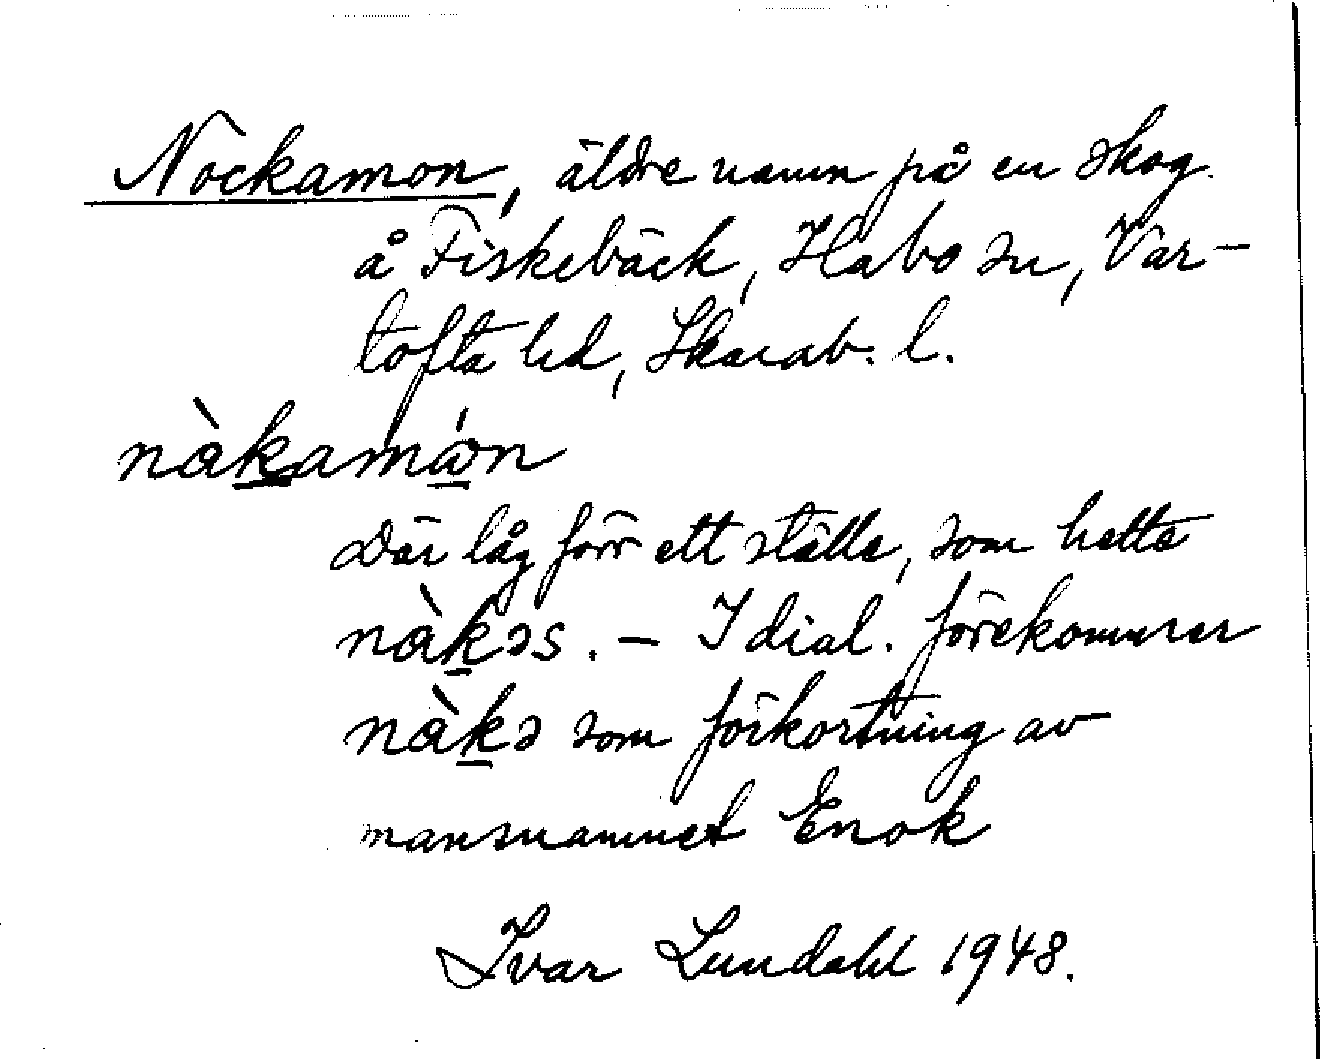 Nockamon, äldre namn på en skog
å Fiskebäck, Habo sn, Var-
tofta hd, Skarab. l.
nàkamán
Där låg förr ett ställe, som hette
nàkəs. – I dial. förekommer
nàkə som förkortning av
mansnamnet Enok
Ivar Lundahl 1948.